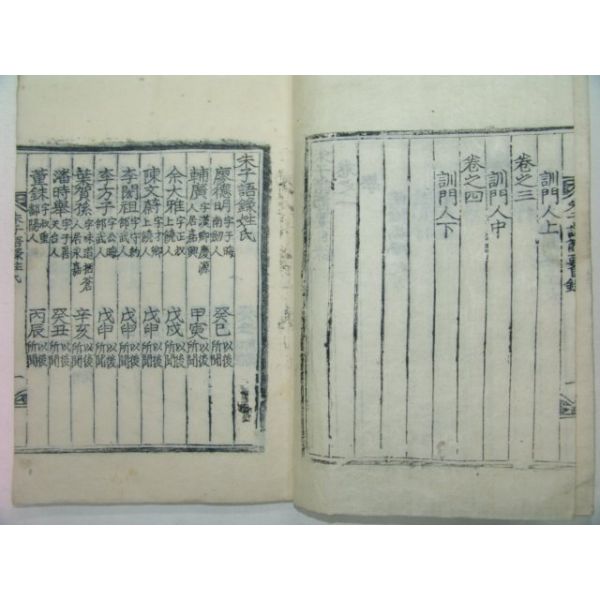 訓門人上
卷之三
訓門人中
卷之四
訓門人下
朱子語錄姓氏
廖德明 字子晦南劒人 癸巳 以後所聞
輔廣 字漢卿慶源人居嘉興 甲寅 以後所聞
余大雅 字正叔上饒人 戊戌 以後所聞
陳文蔚 字才卿上饒人 戊申 以後所聞
李閎祖 字守約邵武人 戊申 以後所聞
李方子 字公晦邵武人 戊申 以後所聞
葉賀孫 字味道括蒼人居永嘉 辛亥 以後所聞
潘時舉 字子善天台人 癸丑 以後所聞
董銖 字叔重鄱陽人 丙辰 以後所聞
朱子語錄姓氏